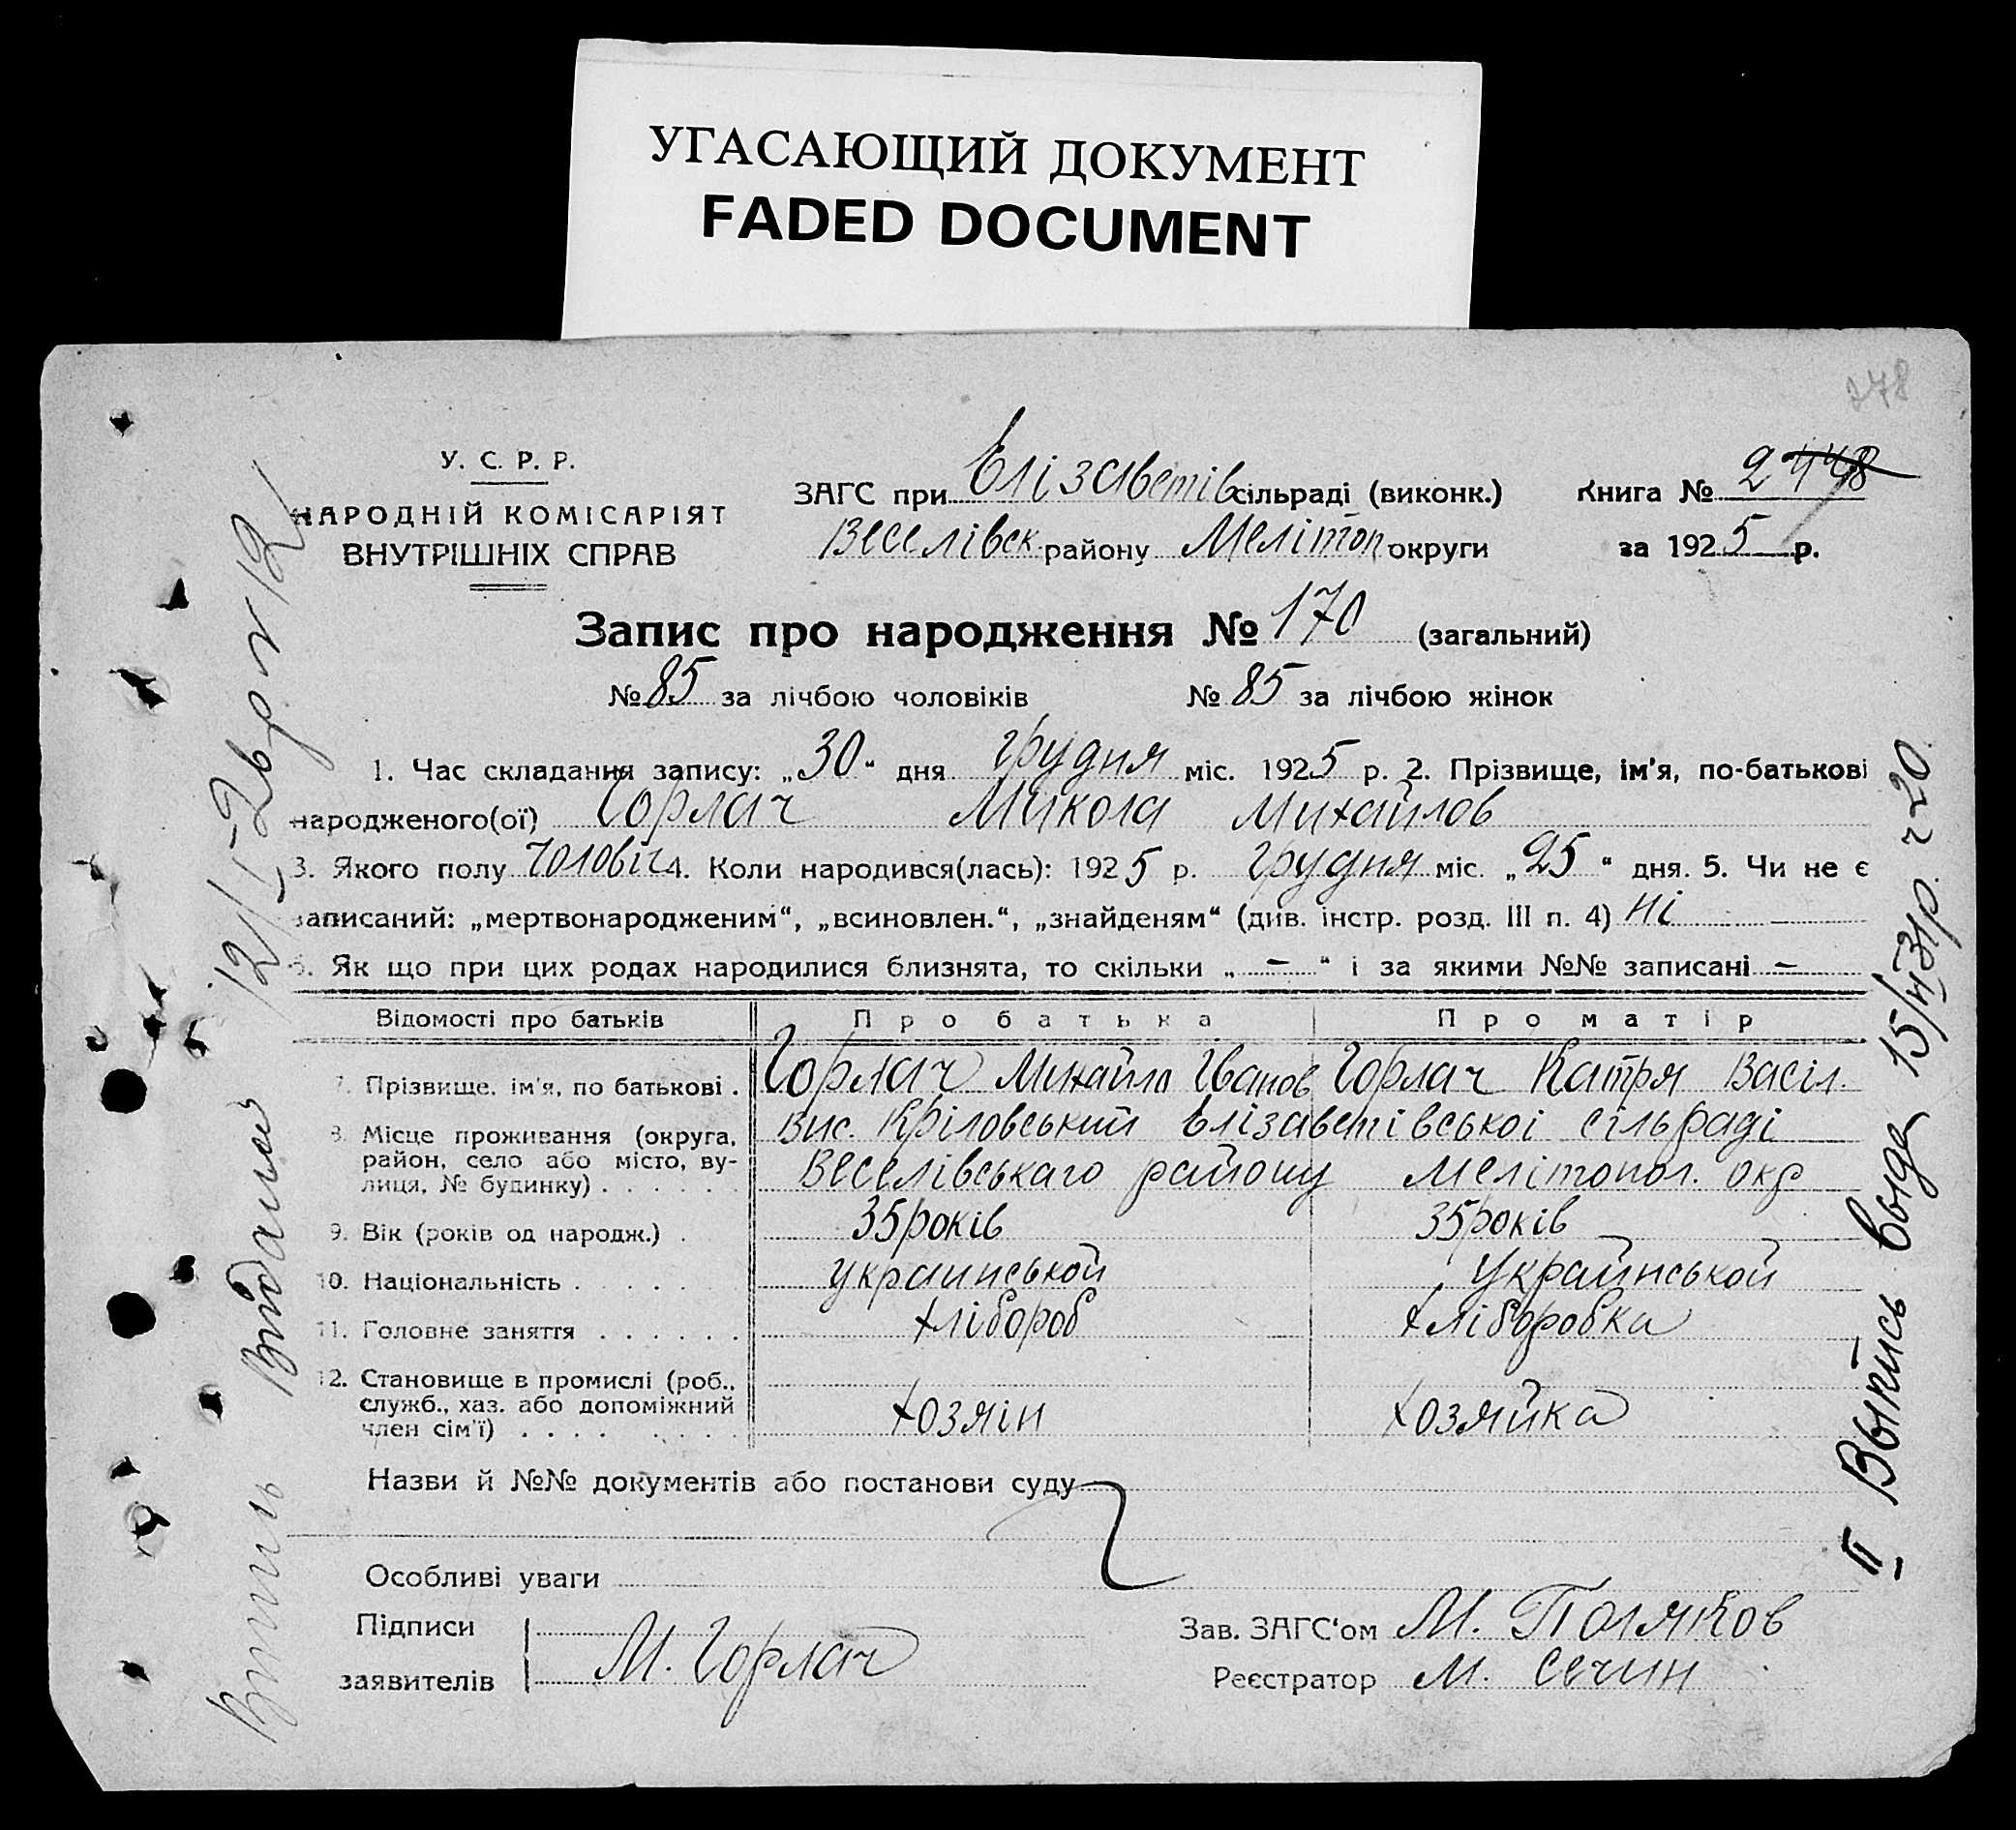 УГАСАЮЩИЙ ДОКУМЕНТ
FADED DOCUMENT
278
У. С. Р. Р.
НАРОДНІЙ КОМІСАРІЯТ
ВНУТРІШНІХ СПРАВ
ЗАГС при Елізаветів сільраді (виконк.) Книга № 2
Веселівськ району Мелітоп округи за 1925 р.
Запис про народження № 170 (загальний)
№ 85 за лічбою чоловіків № 85 за лічбою жінок
1. Час складання запису: „30“ дня грудня міс. 1925 р. 2. Прізвище, ім'я, по-батькові
народженого(ої) Горлач Микола Михайлов
3. Якого полу чоловіч 4. Коли народився(лась): 1925 р. грудня міс. „25“ дня. 5. Чи не є
записаний: „мертвонародженим“, „всиновлен.“, „знайденям“ (див. інстр. розд. III п. 4) ні
6. Як що при цих родах народилися близнята, то скільки „ — “ і за якими №№ записані —
Відомості про батьків Про батька Про матір
7. Прізвище, ім'я, по батькові . Горлач Михайло Іванов Горлач Катря Васіл.
8. Місце проживання (округа, район, село або місто, ву-
лиця, № будинку) . . . . . .
Вис. Кріловський Елізаветівської сільраді
Веселівськаго району Мелітопол. окр
9. Вік (років од народж.) . 35 років 35 років
10. Національність . . . . украинськой Украинськой
11. Головне заняття . . . . . . хлібороб хліборобка
12. Становище в промислі (роб.,
служб., хаз. або допоміжний
член сім'ї) . . . . . . . .
хозяін хозяйка
Назви й №№ документів або постанови суду
Особливі уваги
Підписи
заявителів
М. Горлач
Зав. ЗАГС'ом М. Поляков
Реєстратор М. Сечин
12/I-26 р № 12
II Выпись выда 15/II 31 р. ч 20